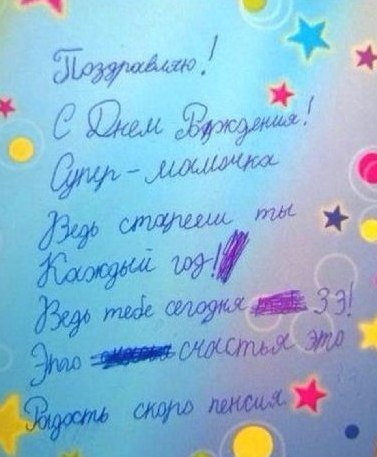 Поздравляю!
С Днем Рождения!
Супер-мамочка
Ведь стареeш ты
Каждый год!
Ведь тебе сегодня 39!
Это счастья это
Радость скоро пенсия